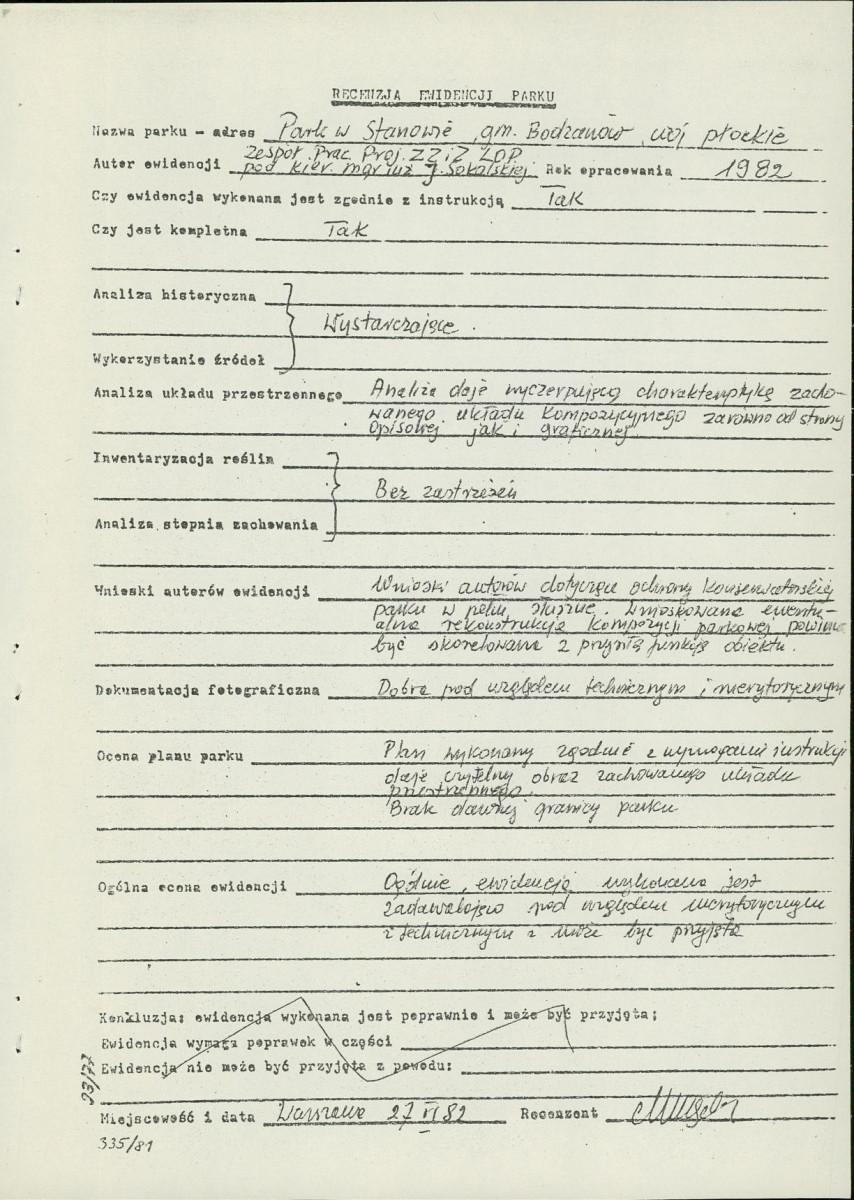 RECENZJA EWIDENCJI PARKU
Nazwa parku - adres Park w Stanowie, gm. Bodzanów, woj płockie
Zespół Prac. Proj. ZZiZ ZDP
Autor ewidencji pod kier. mgr inż J. Sokalskiej Rok opracowania 1982
Czy ewidencja wykonana jest zgodnie z instrukcją Tak
Czy jest kompletna Tak
Analiza historyczna
Wystarczające.
Wykorzystanie źródeł
Analiza układu przestrzennego Analiza daje wyczerpującą charakterystykę zacho-
wanego układu kompozycyjnego zarówno od strony
opisowej jak i graficznej.
Inwentaryzacja roślin
Bez zastrzeżeń
Analiza stopnia zachowania
Wnioski autorów ewidencji Wnioski autorów dotyczące ochrony konserwatorskiej
parku w pełni słuszne. Wnioskowana ewentu-
alna rekonstrukcja kompozycji parkowej powinna
być skorelowana z przyszłą funkcją obiektu.
Dokumentacja fotograficzna Dobra pod względem technicznym i merytorycznym
Ocena planu parku Plan wykonany zgodnie z wymogami instrukcji
daje czytelny obraz zachowanego układu
przestrzennego.
Brak dawnej granicy parku
Ogólna ocena ewidencji Ogólnie, ewidencja wykonana jest
zadawalająco pod względem merytorycznym
i technicznym i może być przyjęta
Konkluzja: ewidencja wykonana jest poprawnie i może być przyjęta;
Ewidencja wymaga poprawek w części
Ewidencja nie może być przyjęta z powodu:
Miejscowość i data Warszawa 27 VI 82 Recenzent
335/81